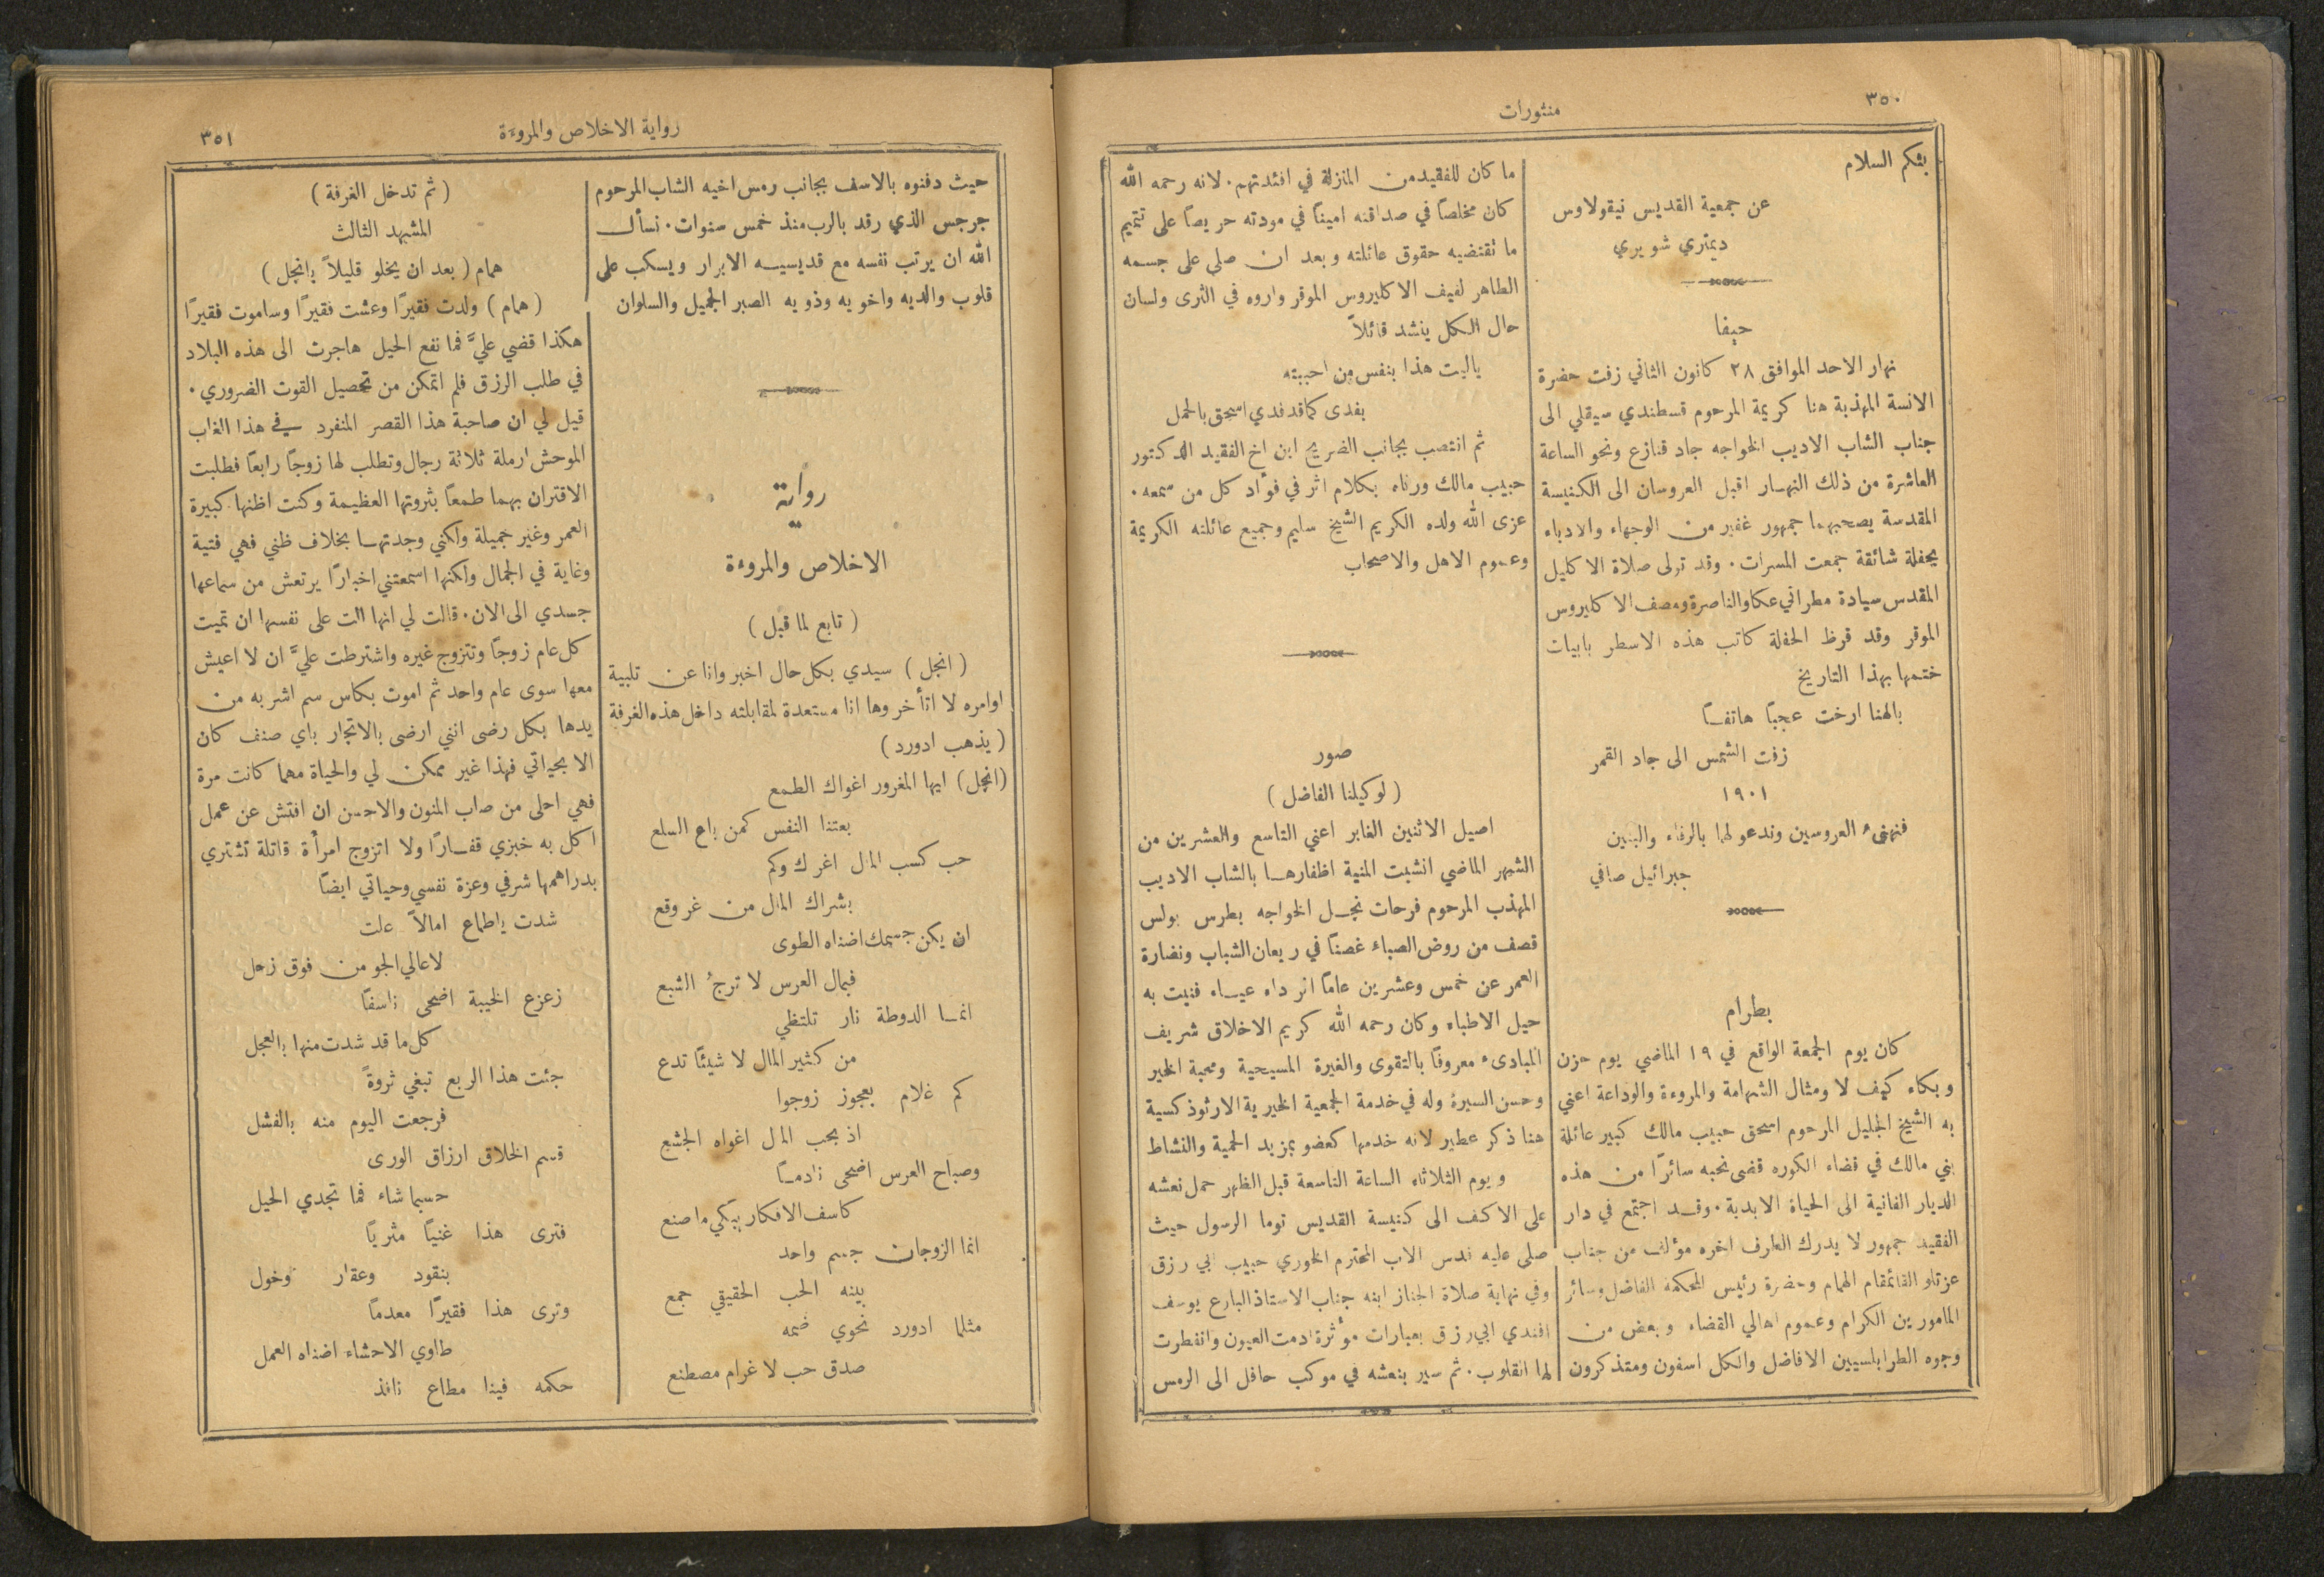 ٣٥٠
منثورات
بثكم السلام
عن جمعية القديس نيقولاوس
ديمتري شويري
حيفا
نهار الاحد الموافق ٢٨ كانون الثاني زفت حضرة
الانسة المهذبة هنا كريمة المرحوم قسطندي سيقلي الى
جناب الشاب الاديب الخواجه جاد قنازع ونحو الساعة
العاشرة من ذلك النهار اقبل العروسان الى الكنيسة
المقدسة يصحبهما جمهور غفير من الوجهاء والادباء
بحفلة شائقة جمعت المسرات . وقد تولى صلاة الاكليل
المقدس سيادة مطراني عكا والناصرة ومصف الاكليروس
الموقر وقد قرظ الحفلة كاتب هذه الاسطر بابيات
ختمها بهذا التاريخ
بالهنا ارخت عجبًا هاتفًا
زفت الشمس الى جاد القمر
١٩٠١
فنهنىء العروسين وندعو لهما بالرفاء والبنين
جبرائيل صافي
بطرام
كان يوم الجمعة الواقع في ١٩ الماضي يوم حزن
وبكاء كيف لا ومثال الشهامة والمروءة والوداعة اعني
به الشيخ الجليل المرحوم اسحق حبيب مالك كبير عائلة
بني مالك في قضاء الكوره قضى نحبه سائرًا من هذه
الديار الفانية الى الحياة الابدية . وقد اجتمع في دار
الفقيد جمهور لا يدرك الطرف اخره مؤلف من جناب
عزتلو القائمقام الهمام وحضرة رئيس المحكمة الفاضل وسائر
المامورين الكرام وعموم اهالي القضاء وبعض من
وجوه الطرابلسيين الافاضل والكل اسفون ومتذكرون
ما كان للفقيد من المنزلة في افئدتهم . لانه رحمه الله
كان مخلصًا في صداقته امينًا في مودته حريصًا على تتميم
ما تقتضيه حقوق عائلته وبعد ان صلي على جسمه
الطاهر لفيف الاكليروس الموقر واروه في الثرى ولسان
حال الكل ينشد قائلاً
ياليت هذا بنفس من احببته
يفدى كما قد فدي اسحق بالحمل
ثم انتصب بجانب الضريح ابن اخ الفقيد الدكتور
حبيب مالك ورثاه بكلام اثر في فوأد كل من سمعه .
عزى الله ولده الكريم الشيخ سليم وجميع عائلته الكريمة
وعموم الاهل والاصحاب
صور
( لوكيلنا الفاضل )
اصيل الاثنين الغابر اعني التاسع والعشرين من
الشهر الماضي انشبت المنية اظفارها بالشاب الاديب
المهذب المرحوم فرحات نجل الخواجه بطرس بولس
قصف من روض الصباء غصنًا في ريعان الشباب ونضارة
العمر عن خمس وعشرين عامًا اثر داء عياء فنيت به
حيل الاطباء وكان رحمه الله كريم الاخلاق شريف
المبادىء معروفًا بالتقوى والغيرة المسيحية ومحبة الخير
وحسن السيرة وله في خدمة الجمعية الخيرية الارثوذكسية
هنا ذكر عطير لانه خدمها كعضو بمزيد الحمية والنشاط
ويوم الثلاثاء الساعة التاسعة قبل الظهر حمل نعشه
على الاكف الى كنيسة القديس توما الرسول حيث
صلى عليه قدس الاب المحترم الخوري حبيب ابي رزق
وفي نهاية صلاة الجناز ابنه جناب الاستاذ البارع يوسف
افندي ابي رزق بعبارات مؤثرة ادمت العيون وانفطرت
لها القلوب . ثم سير بنعشه في موكب حافل الى الرمس
رواية الاخلاص والمروءة
٣٥١
حيث دفنوه بالاسف بجانب رمس اخيه الشاب المرحوم
جرجس الذي رقد بالرب منذ خمس سنوات . نسأل
الله ان يرتب نفسه مع قديسيه الابرار ويسكب على
قلوب والديه واخويه وذويه الصبر الجميل والسلوان
رواية
الاخلاص والمروءة
( تابع لما قبل )
( انجل ) سيدي بكل حال اخبر وانا عن تلبية
اوامره لا اتأخر وها انا مستعدة لمقابلته داخل هذه الغرفة
( يذهب ادورد )
( انجل ) ايها المغرور اغواك الطمع
بعتنا النفس كمن باع السلع
حب كسب المال اغرك وكم
بشراك المال من غر وقع
ان يكن جسمك اضناه الطوى
فبمال العرس لا ترجُ الشبع
انما الدوطة نار تلتظي
من كثير المال لا شيئًا تدع
كم غلام بعجوز زوجوا
اذ بحب المال اغواه الجشع
وصباح العرس اضحى نادمًا
كاسف الافكار يبكي ما صنع
انما الزوجان جسم واحد
بينه الحب الحقيقي جمع
مثلما ادورد نحوي ضمه
صدق حب لا غرام مصطنع
( ثم تدخل الغرفة )
المشهد الثالث
همام ( بعد ان يخلو قليلاً بانجل )
( همام ) ولدت فقيرًا وعشت فقيرًا وساموت فقيرًا
هكذا قضي عليَّ فما نفع الحيل هاجرت الى هذه البلاد
في طلب الرزق فلم اتمكن من تحصيل القوت الضروري .
قيل لي ان صاحبة هذا القصر المنفرد في هذا الغاب
الموحش ارملة ثلاثة رجال وتطلب لها زوجًا رابعًا فطلبت
الاقتران بهما طمعًا بثروتها العظيمة وكنت اظنها كبيرة
العمر وغير جميلة ولكني وجدتها بخلاف ظني فهي فتية
وغاية في الجمال ولكنها اسمعتني اخبارًا يرتعش من سماعها
جسدي الى الان . قالت لي انها الت على نفسها ان تميت
كل عام زوجًا وتتزوج غيره واشترطت عليَّ ان لا اعيش
معها سوى عام واحد ثم اموت بكاس سم اشربه من
يدها بكل رضى انني ارضى بالاتجار باي صنف كان
الا بحياتي فهذا غير ممكن لي والحياة مهما كانت مرة
فهي احلى من صاب المنون والاحسن ان افتش عن عمل
اكل به خبزي قفارًا ولا اتزوج امرأة قاتلة تشتري
بدراهمها شرفي وعزة نفسي وحياتي ايضًا
شدت ياطماع امالاً علت
لاعالي الجو من فوق زحل
زعزع الخيبة اضحى ناسفًا
كل ما قد شدت منها بالعجل
جئت هذا الربع تبغي ثروةً
فرجعت اليوم منه بالفشل
قسم الخلاق ارزاق الورى
حسبما شاء فما تجدي الحيل
فترى هذا غنيًا مثريًا
بنقود وعقار وخول
وترى هذا فقيرًا معدمًا
طاوي الاحشاء اضناه العمل
حكمه فينا مطاع نافذ